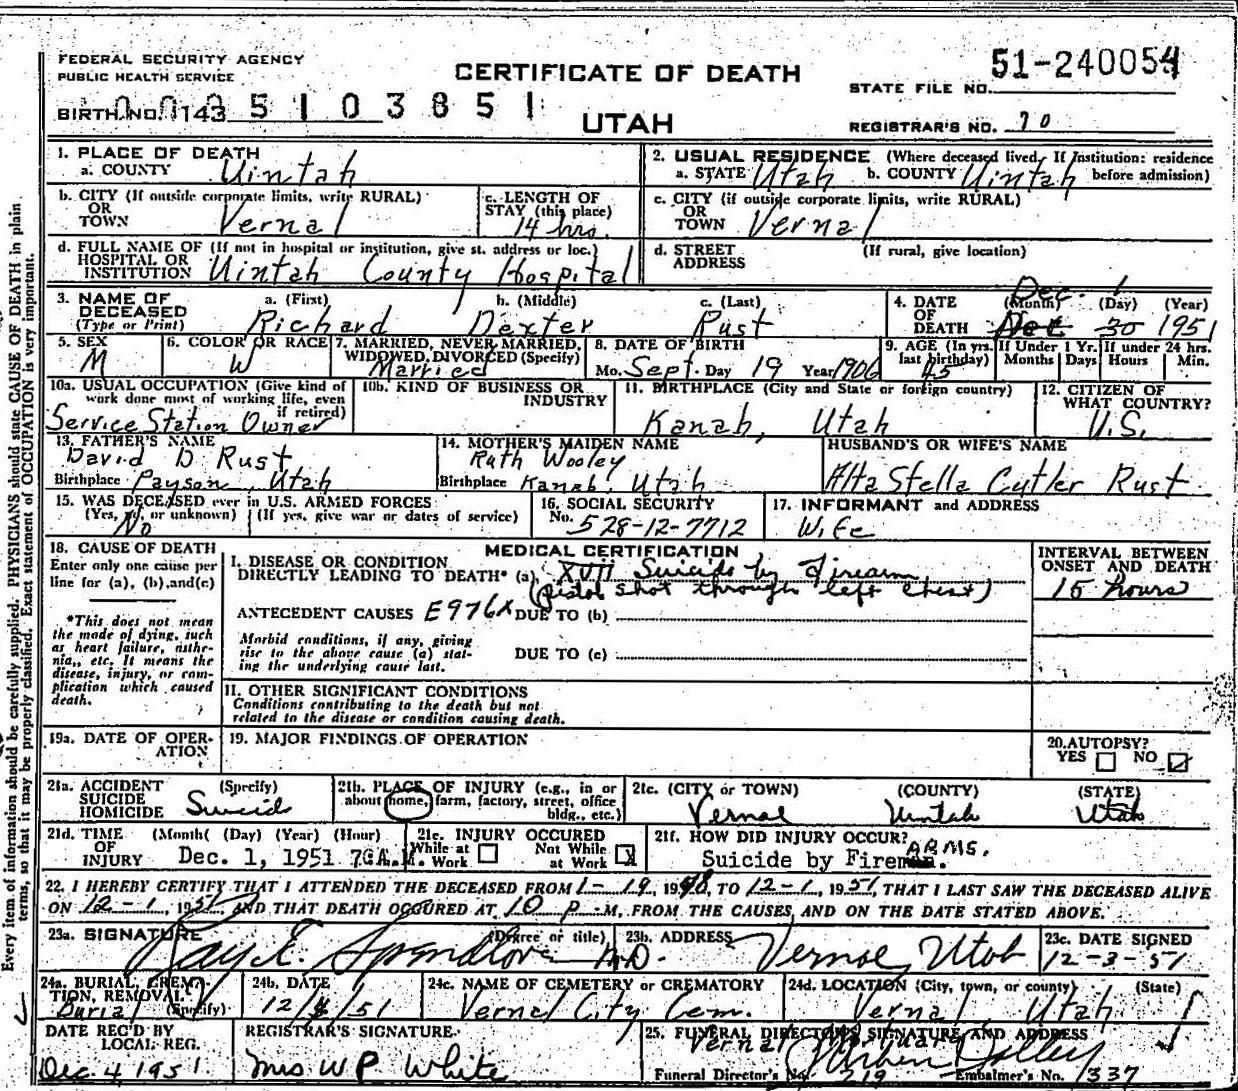 FEDERAL SECURITY AGENCY
PUBLIC HEALTH SERVICE
CERTIFICATE OF DEATH
UTAH
STATE FILE NO. 51-240054
BIRTH NO. 143 5103851
REGISTRAR'S NO. 70
1. PLACE OF DEATH
a. COUNTY Uintah
2. USUAL RESIDENCE (Where deceased lived. If Institution: residence before admission)
a. STATE Utah b. COUNTY Uintah
b. CITY (If outside corporate limits, write RURAL) OR TOWN Vernal
c. LENGTH OF STAY (this place) 14 hrs.
c. CITY (if outside corporate limits, write RURAL) OR TOWN Vernal
d. FULL NAME OF (If not in hospital or institution, give st. address or loc.) HOSPITAL OR INSTITUTION Uintah County Hospital
d. STREET ADDRESS (If rural, give location)
3. NAME OF DECEASED (Type or Print)
a. (First) Richard b. (Middle) Dexter c. (Last) Rust
4. DATE OF DEATH (Month) (Day) (Year) Dec. 1
Dec 30 1951
5. SEX M
6. COLOR OR RACE W
7. MARRIED, NEVER MARRIED, WIDOWED, DIVORCED (Specify) Married
8. DATE OF BIRTH Mo. Sept. Day 19 Year 1906
9. AGE (In yrs. last birthday) 45 If Under 1 Yr. Months Days If under 24 hrs. Hours Min.
10a. USUAL OCCUPATION (Give kind of work done most of working life, even if retired) Service Station Owner
10b. KIND OF BUSINESS OR INDUSTRY
11. BIRTHPLACE (City and State or foreign country) Kanab, Utah
12. CITIZEN OF WHAT COUNTRY? U.S.
13. FATHER'S NAME David D Rust
Birthplace Payson, Utah
14. MOTHER'S MAIDEN NAME Ruth Wooley
Birthplace Kanab, Utah
HUSBAND'S OR WIFE'S NAME
Alta Stella Cutler Rust
15. WAS DECEASED ever in U.S. ARMED FORCES
(Yes, no, or unknown) (If yes, give war or dates of service) No
16. SOCIAL SECURITY No. 528-12-7712
17. INFORMANT and ADDRESS Wife
18. CAUSE OF DEATH
Enter only one cause per line for (a), (b), and (c)
*This does not mean the mode of dying, such as heart failure, asthenia, etc. It means the disease, injury, or complication which caused death.
MEDICAL CERTIFICATION
I. DISEASE OR CONDITION DIRECTLY LEADING TO DEATH* (a) XVII Suicide by firearm
(pistol shot through left chest)
ANTECEDENT CAUSES E976X DUE TO (b)
Morbid conditions, if any, giving rise to the above cause (a) stating the underlying cause last. DUE TO (c)
INTERVAL BETWEEN ONSET AND DEATH
15 hours
II. OTHER SIGNIFICANT CONDITIONS
Conditions contributing to the death but not related to the disease or condition causing death.
19a. DATE OF OPERATION
19. MAJOR FINDINGS OF OPERATION
20. AUTOPSY? YES NO
21a. ACCIDENT SUICIDE HOMICIDE (Specify) Suicide
21b. PLACE OF INJURY (e.g., in or about home, farm, factory, street, office bldg., etc.)
21c. (CITY or TOWN) (COUNTY) (STATE)
Vernal Uintah Utah
21d. TIME OF INJURY (Month) (Day) (Year) (Hour) Dec. 1, 1951
21e. INJURY OCCURED While at Work Not While at Work
21f. HOW DID INJURY OCCUR?
Suicide by Firearms.
22. I HEREBY CERTIFY THAT I ATTENDED THE DECEASED FROM 1-19, TO 12-1, 1951, THAT I LAST SAW THE DECEASED ALIVE
ON 12-1, 1951, AND THAT DEATH OCCURED AT 10 P.M., FROM THE CAUSES, AND ON THE DATE STATED ABOVE.
23a. SIGNATURE (Degree or title) Ray E. Spendlove M.D.
23b. ADDRESS Vernal, Utah
23c. DATE SIGNED 12-3-51
24a. BURIAL, CREMATION, REMOVAL (Specify) Burial
24b. DATE 12/4/51
24c. NAME OF CEMETERY or CREMATORY Vernal City Cem.
24d. LOCATION (City, town, or county) (State) Vernal, Utah
DATE REC'D BY LOCAL REG. Dec 4, 1951
REGISTRAR'S SIGNATURE Mrs W P White
25. FUNERAL DIRECTOR'S SIGNATURE AND ADDRESS
Vernal
Funeral Director's No. 719 Embalmer's No. 337
Every item of information should be carefully supplied. PHYSICIANS should state CAUSE OF DEATH in plain
terms, so that it may be properly classified. Exact statement of OCCUPATION is very important.